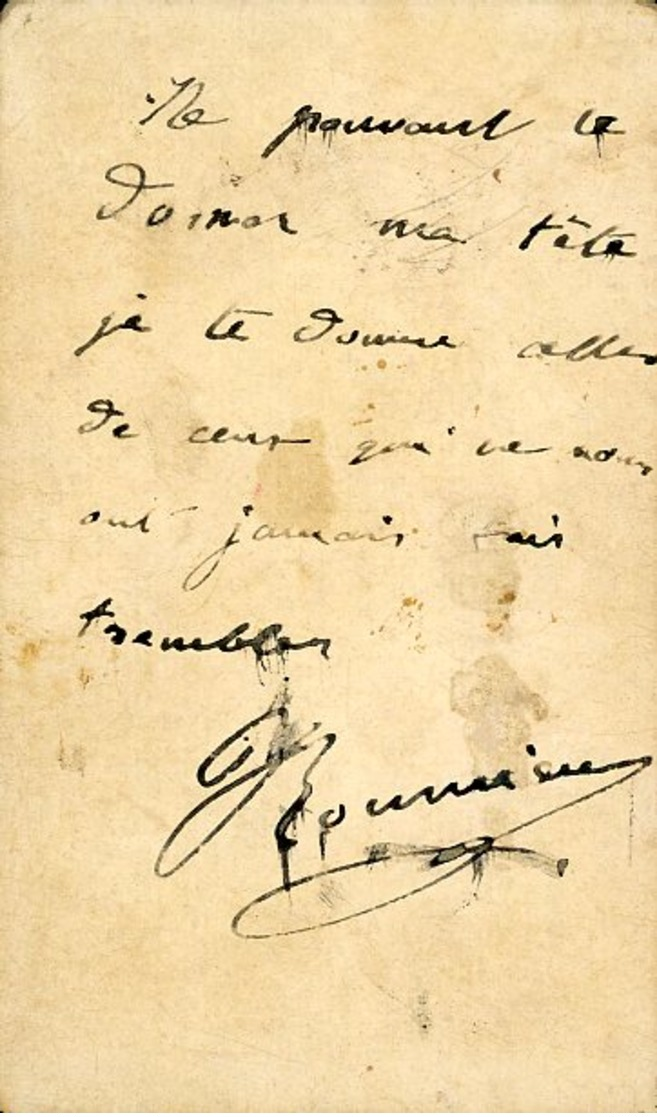 Ne pouvant te
donner ma tête
je te donne celles
de ceux qui ne nous
ont jamais fait
trembler